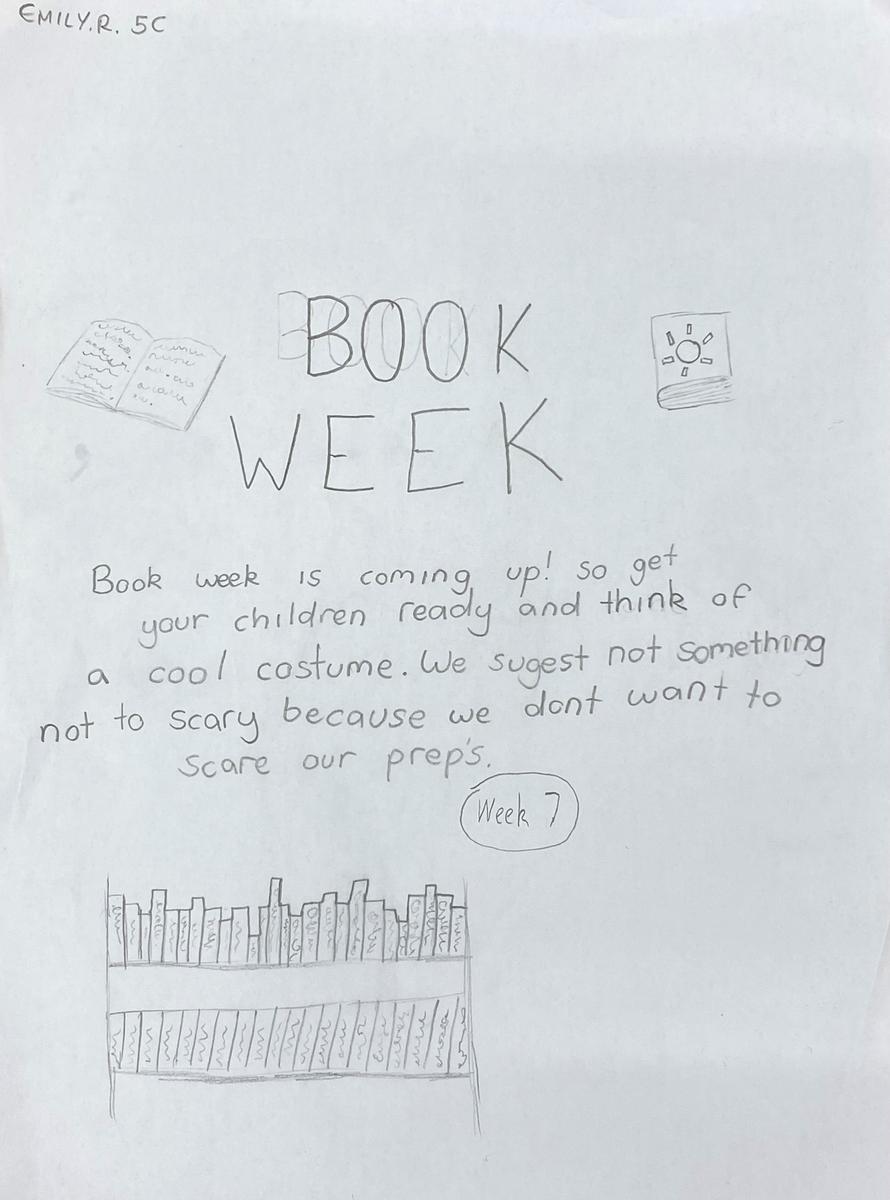 EMILY.R. 5C
BOOK
WEEK
Book week is coming up! so get
your children ready and think of
a cool costume. We sugest not something
not to scary because we dont want to
scare our prep's.
Week 7